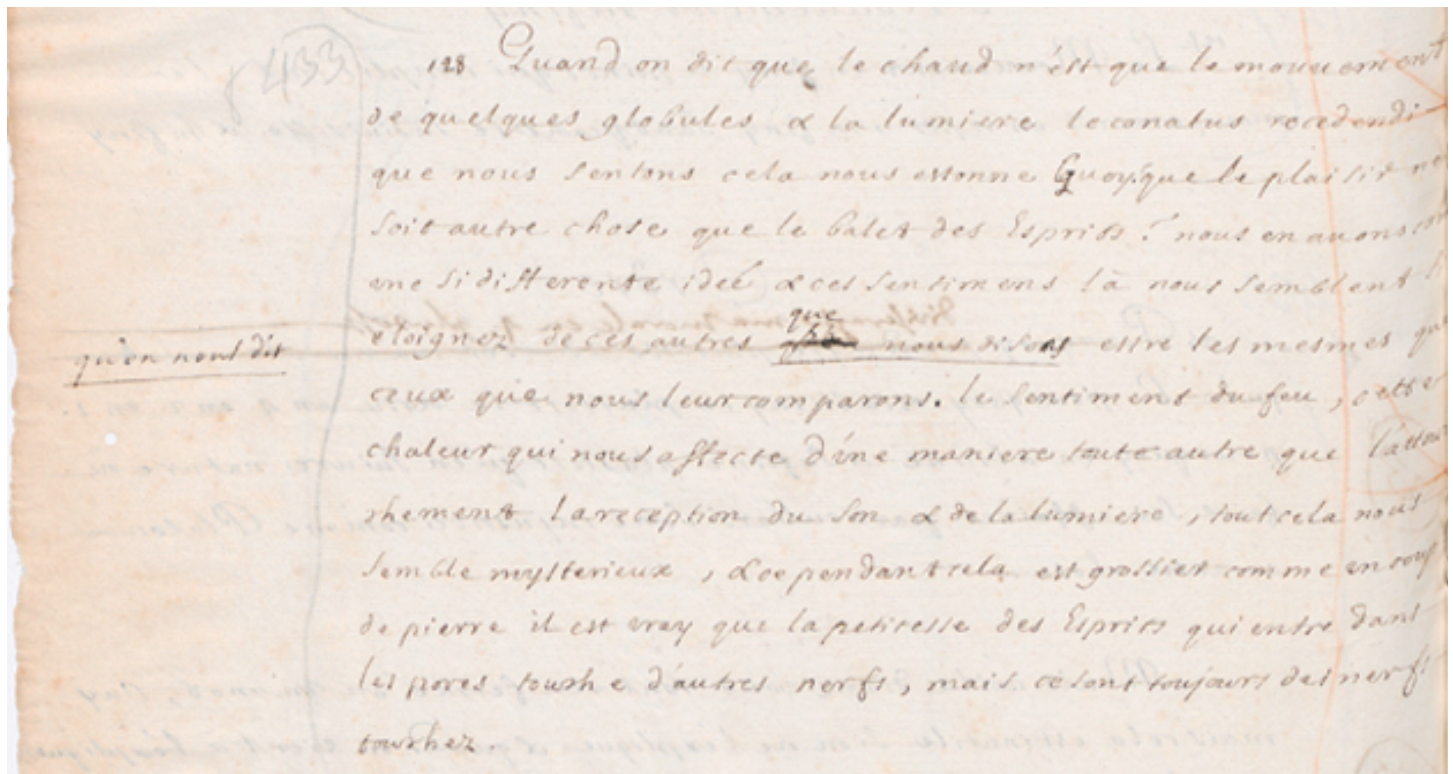 433
128 Quand on dit que le chaud n'est que le mouuement
de quelques globules & la lumiere le conatus recedendi
que nous sentons cela nous estonne Quoy. que le plaisir ne
soit autre chose que le balet des Esprits? nous en auons
une si differente ideé & ces sentimens là nous semblent si
que
eloignez de ces autres nous disons estre les mesmes que
qu'on nous dit
ceux que nous leur comparons. le sentiment du feu, cette
chaleur qui nous affecte d'une maniere toute autre que l'attou
chement la reception du son & de la lumiere, tout cela nous
semble mysterieux, & cependant cela est grossier comme un coup
de pierre il est vray que la petitesse des Esprits qui entre dans
les pores touche d'autres nerfs, mais ce sont toujours des nerfs
touchez.